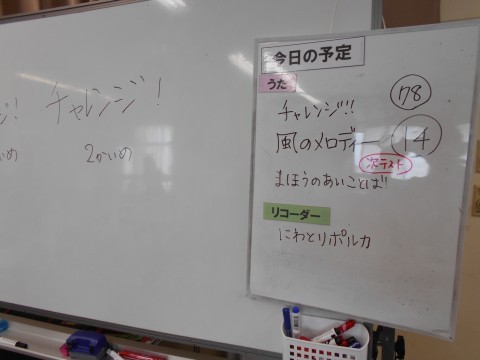 チャレンジ!
2かいめ
今日の予定
うた
チャレンジ!! 78
風のメロディー 14
次テスト
まほうのあいことば!
リコーダー
にわとりポルカ